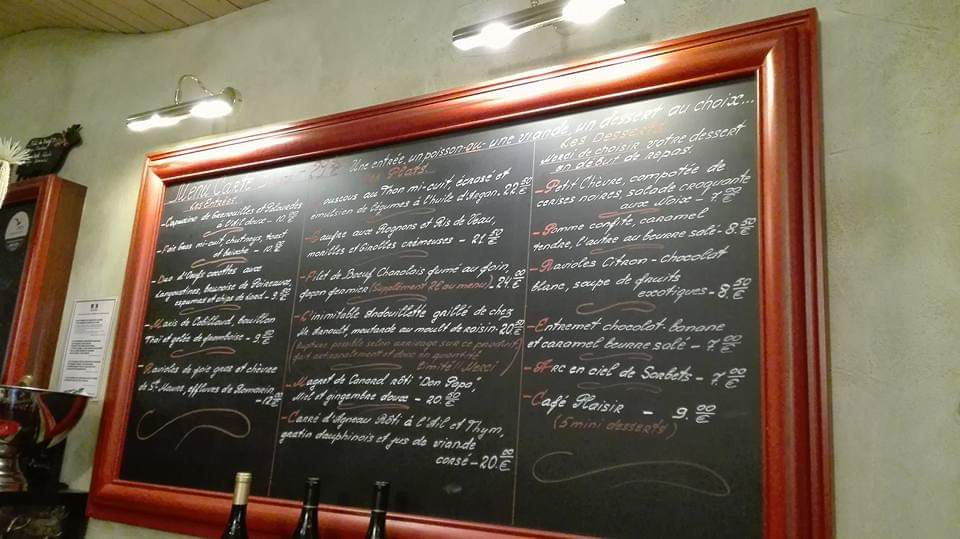 Menu Carte
Une entrée, un poisson ou une viande, un dessert au choix...
Les Entrées
à l'Ail doux - 10.00
- Foie Gras mi-cuit, chutneys, toast
et brioche - 10.00
- Duo d'Oeufs cocottes aux
Langoustines, beurnoise de Poireaux,
espumas et chips de Lard - 9.
Maxis de Cabillaud, bouillon
Thaï et gelée de framboise - 9.
- Ravioles de foie gras et chèvre
de Ste Maure, effluves de Romarin,
Plats...
ouscous au Thon mi-cuit écrasé et
émulsion de légumes à l'huile d'Argan. 22.50 €
- Gaufre aux Rognons et Ris de Veau,
morilles et Girolles crémeuses - 21.50 €
- Filet de Boeuf Charolais fumé au foin,
façon fermier (Supplément 2€ au menu) - 24.00 €
- L'inimitable Andouillette grillé de chez
Mr Renoult, moutarde au moult de raisin. 20.50 €
(Rupture possible selon arrivage car ce produit
fait artisanalement et donc en quantité
limité!! Merci)
- Magret de Canard rôti "Don Papa",
Miel et gingembre doux - 20.
- Carré d'Agneau Rôti à l'Ail et Thym,
gratin dauphinois et jus de viande
corsé - 20.00 €
Les Desserts
Merci de choisir votre dessert
en début de repas.
- Petit Chèvre, compotée de
cerises noires, salade croquante
aux Noix - 7.00 €
- Pomme confite, caramel
tendre, l'autre au beurre salé - 8.50 €
- Ravioles Citron - chocolat
blanc, soupe de fruits
exotiques - 8.50 €
- Entremet chocolat-banane
et caramel beurre salé - 7.00 €
- Arc en ciel de Sorbets - 7.00 €
- Café Plaisir - 9.00 €
(5 mini desserts)